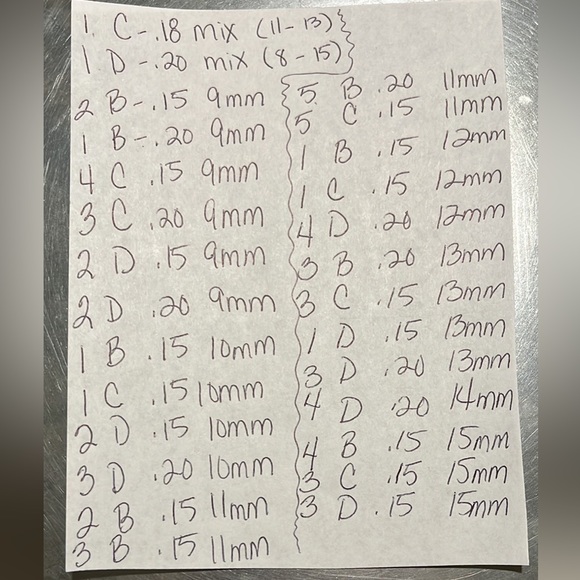 1 C - .18 mix (11-13)
1 D - .20 mix (8-15)
2 B - .15 9mm
1 B - .20 9mm
4 C .15 9mm
3 C .20 9mm
2 D .15 9mm
2 D .20 9mm
1 B .15 10mm
1 C .15 10mm
2 D .15 10mm
3 D .20 10mm
2 B .15 11mm
3 B .15 11mm
5 B .20 11mm
5 C .15 11mm
1 B .15 12mm
1 C .15 12mm
4 D .20 12mm
3 B .20 13mm
3 C .15 13mm
1 D .15 13mm
3 D .20 13mm
4 D .20 14mm
4 B .15 15mm
3 C .15 15mm
3 D .15 15mm